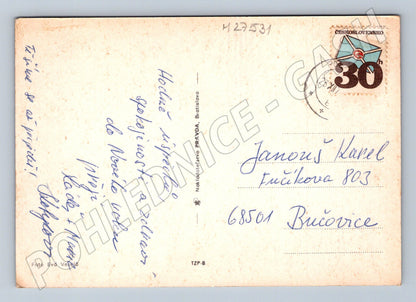 427531
ČESKOSLOVENSKO
30
Těšíme se až přijedeš!
Hodně úspěchů
spokojenosti a zdraví
do Nového roku
přejí
Nakladatelstvo PRAVDA, Bratislava
Janouš Karel
Fučíkova 803
68501 Bučovice
Foto Eva
TZP-8
POHLEDNICE - CASH